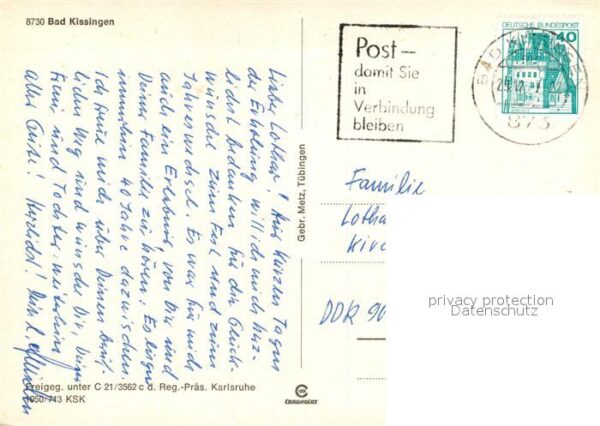 8730 Bad Kissingen
Post –
damit Sie
in
Verbindung
bleiben
DEUTSCHE BUNDESPOST
40
BAD KISSINGEN
873
Lieber Lothar! Aus kurzen Tagen
der Erholung will ich mich herz-
lichst bedanken für die Glück-
wünsche zum Fest und zum
Jahreswechsel. Es war für mich
auch ein Erlebnis, von Dir und
Deiner Familie zu hören. Es liegen
immerhin 40 Jahre dazwischen.
Ich freue mich über Deinen
Weg und wünsche Dir, Deiner
Frau und Tochter weiterhin
alles Gute! Herzlichst! Dein
Gebr. Metz, Tübingen
Familie
Lotha
Kirc
DDR 90
privacy protection
Datenschutz
Freigeg. unter C 21/3562 c d. Reg.-Präs. Karlsruhe
1050/743 KSK
CHROMOLUX